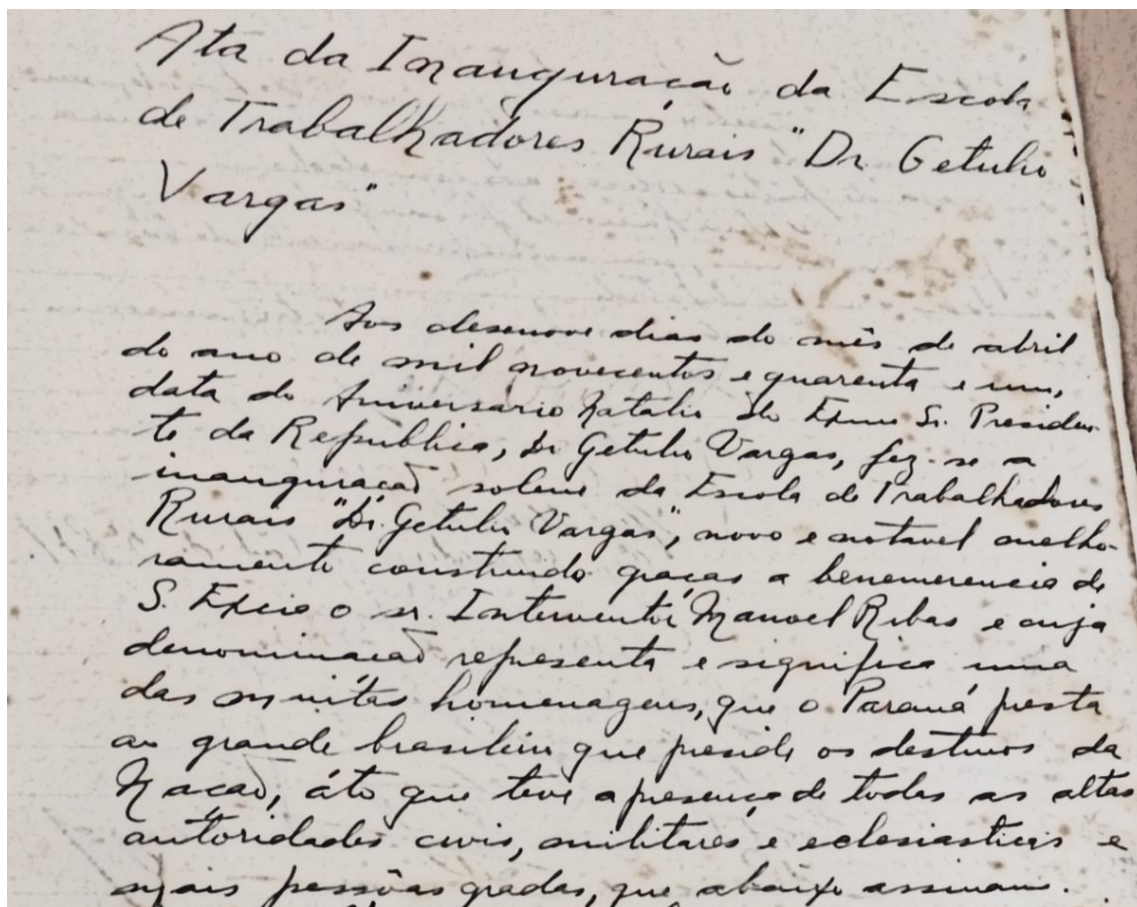 Ata da Inauguração da Escola
de Trabalhadores Rurais "Dr Getulio
Vargas"
Aos desenove dias do mês de abril
do ano de mil novecentos e quarenta e um,
data do Aniversário Natalio do Exmo Sr. Presiden-
te da República, Dr Getulio Vargas, fez-se a
inauguração solene da Escola de Trabalhadores
Rurais "Dr. Getulio Vargas", novo e notavel melho-
ramento construido graças a benemerencia de
S. Excia o sr. Interventor Manoel Ribas e cuja
denominacão representa e significa uma
das muitas homenagens, que o Paraná presta
ao grande brasileiro que preside os destinos da
Nacão, áto que teve a presença de todas as altas
autoridades civis, militares e eclesiasticas e
mais pessôas gradas, que abaixo assinam.